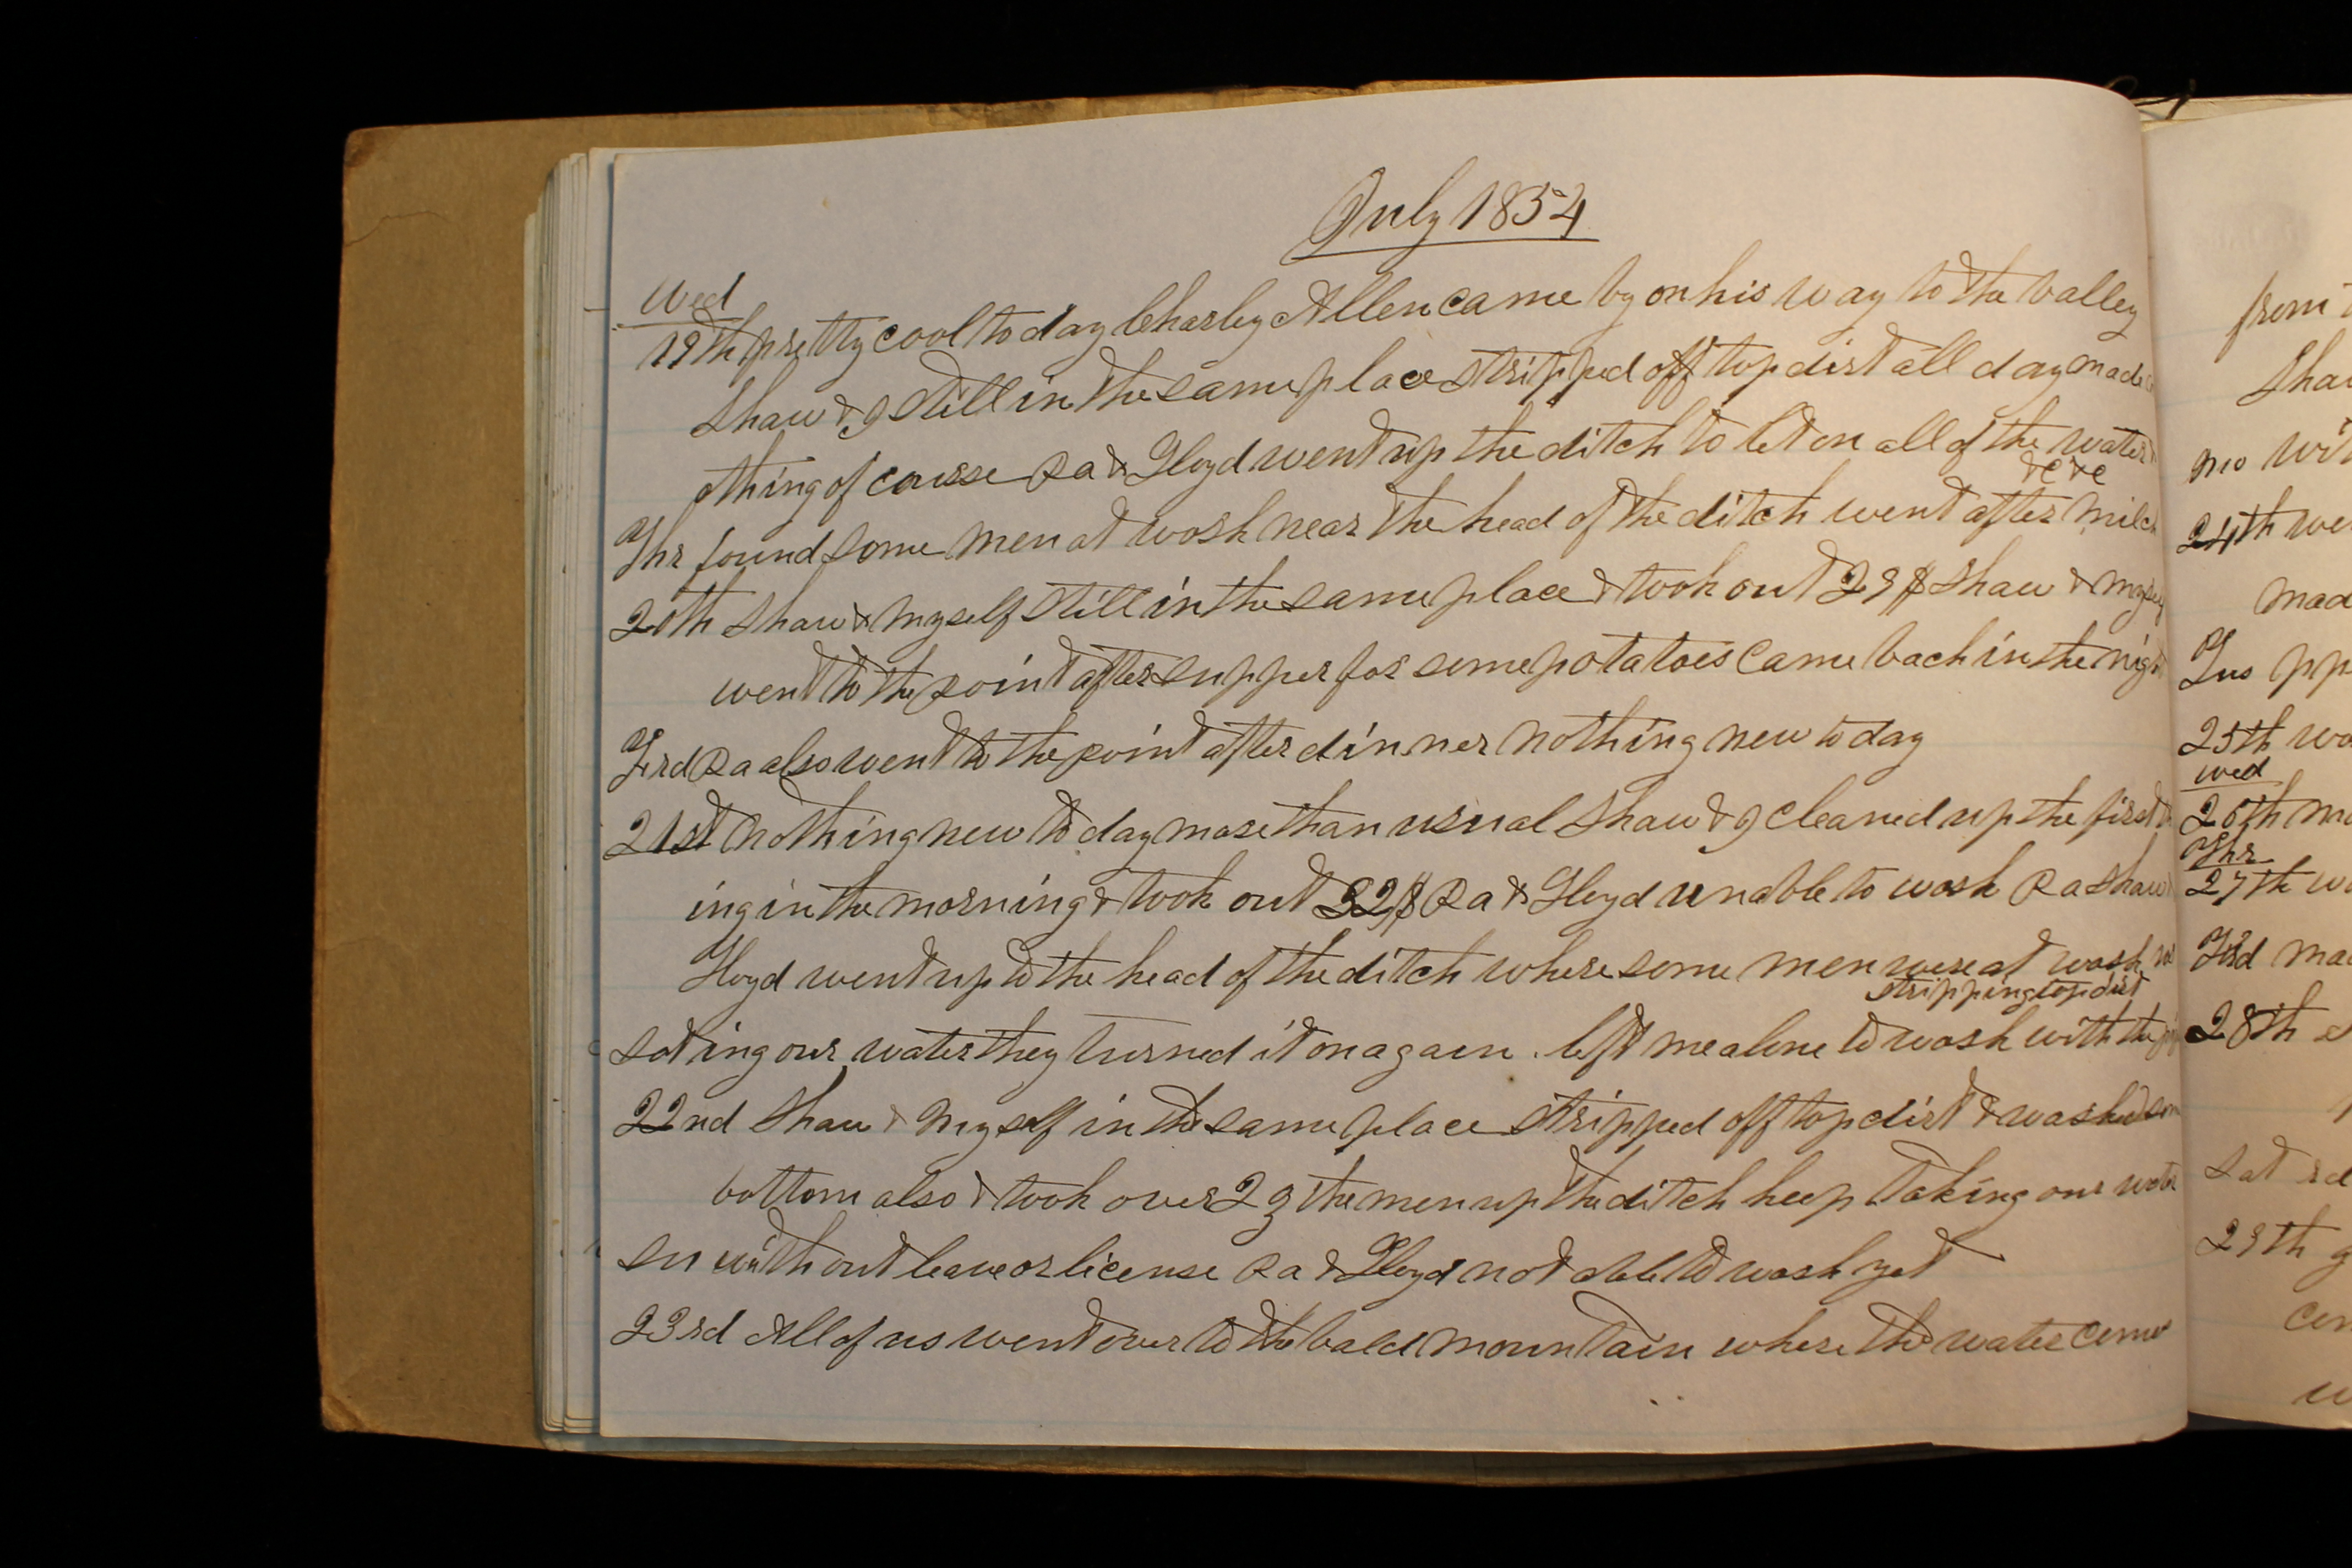 July 1854
Wed
19th pretty cool to day Charley Allen came by on his way to the valley
Shaw & I still in the same place stripped off top dirt all day made
othing of course Pa & Lloyd went up the ditch to let on all of the water
&c &c
Thr found some men at work near the head of the ditch went after milch
20th Shaw & myself still in the same place & took out 29$ Shaw & myself
went to the point after supper for some potatoes came back in the night
Frd Pa also went to the point after dinner nothing new to day
21st nothing new to day more than usual Shaw & I cleaned up the first
ing in the morning & took out 32$ Pa & Lloyd unable to work Pa Shaw
Lloyd went up to the head of the ditch where some men were at work
stripping top dirt
Sat ing our water they turned it on again left me alone to work with the
22nd Shaw & myself in the same place stripped off top dirt & washed some
bottom also & took over 2 ℥ the men up the ditch keep taking our water
Su without leave or license Pa & Lloyd not able to work yet
23rd All of us went over to the bald mountain where the water comes
from
Shaw
no
24th we
mad
Tus
25th
wed
26th
Thr
27th
Frd
28th
Sat
29th